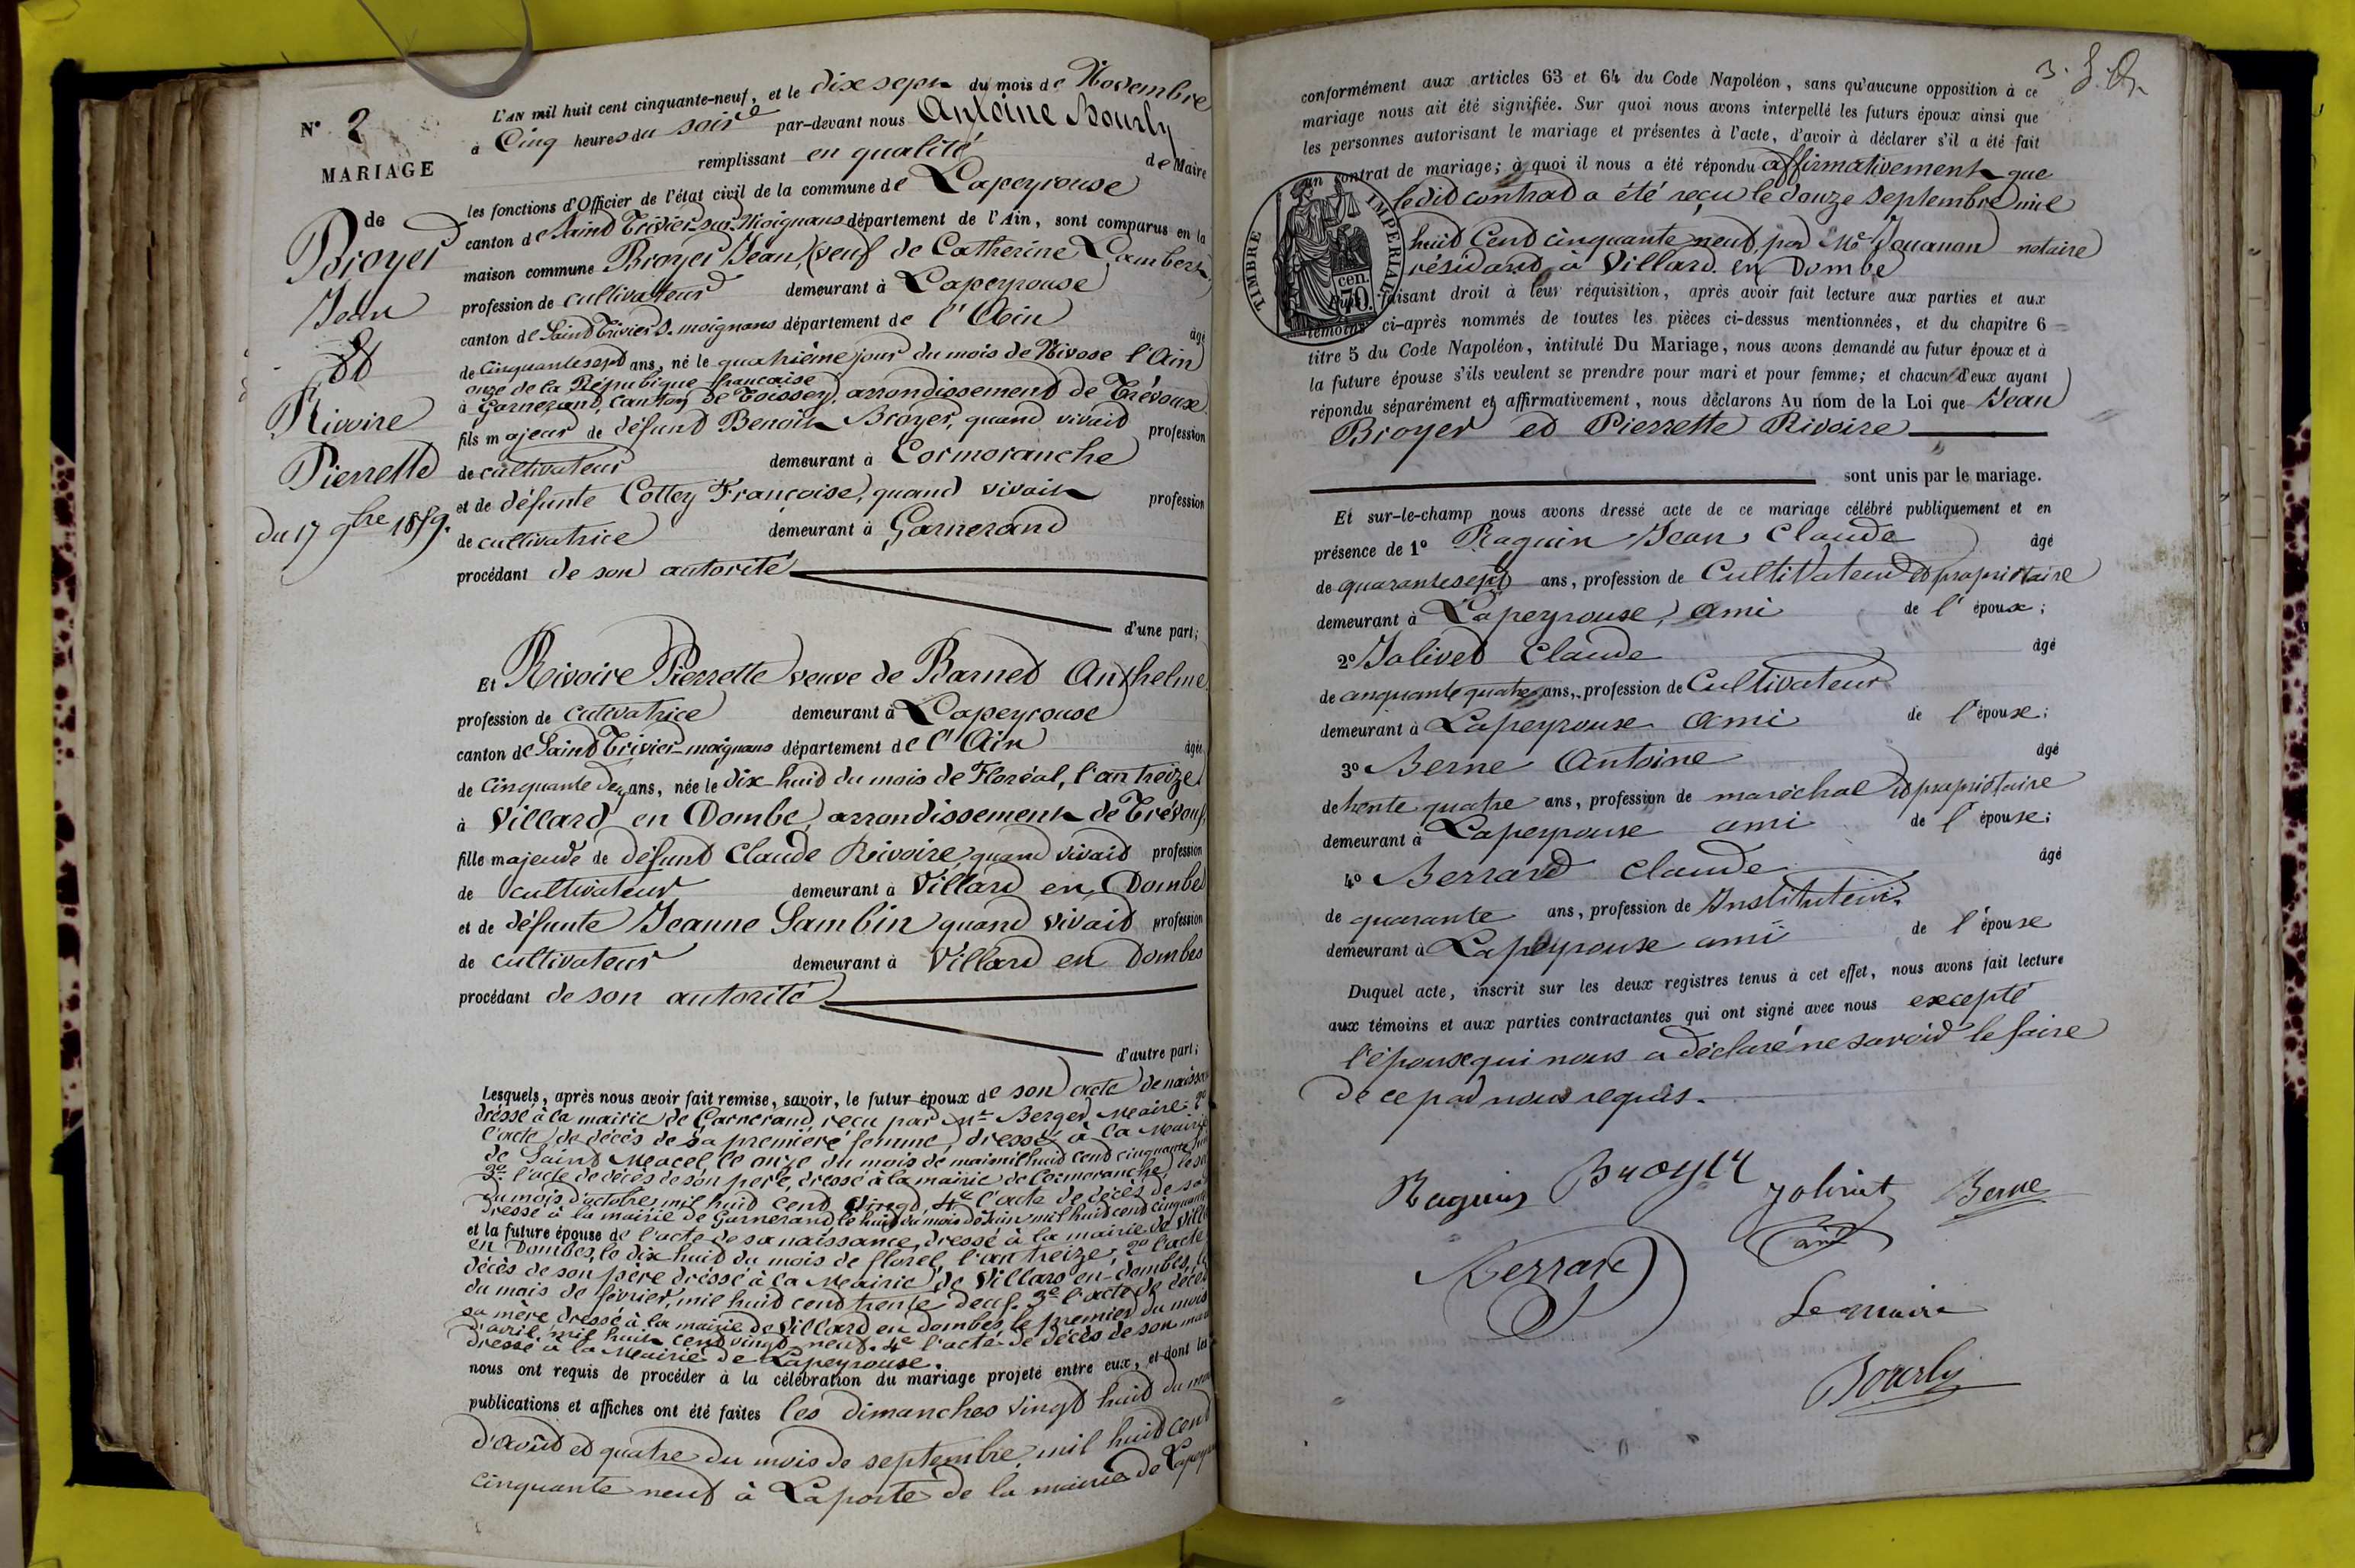 N° 2
MARIAGE
de
Broyer
Jean
&
Rivoire
Pierrette
du 17 9bre 1859.
L'AN mil huit cent cinquante-neuf, et le dix sept du mois de Novembre
à Cinq heures du soir par-devant nous Antoine Bourly
remplissant en qualité de Maire
les fonctions d'Officier de l'état civil de la commune de Lapeyrouse
canton de Saint Trivier sur Moignans département de l'Ain, sont comparus en la
maison commune Broyer Jean, veuf de Catherine Lambert,
profession de cultivateur demeurant à Lapeyrouse
canton de Saint Trivier S. moignans département de l'Ain âgé
de Cinquante sept ans, né le quatrième jour du mois de Nivose l'Ain
onze de la Répubique française
à Garnerand, canton de Toissey, arrondissement de Trévoux
fils majeur de défunt Benoit Broyer, quand vivait profession
de cultivateur demeurant à Cormoranche
et de défunte Cottey Françoise, quand vivait profession
de cultivatrice demeurant à Garnerand
procédant de son autorité
d'une part;
Et Rivoire Pierrette veuve de Barned Anthelme
profession de cutivatrice demeurant à Lapeyrouse
canton de Saint Trivier-moignans département de l'Ain âgée
de Cinquante deux ans, née le dix huit du mois de Floréal, l'an treize
à Villard en Dombe, arrondissement de Trévoux
fille majeure de défunt Claude Rivoire, quand vivait profession
de cultivateur demeurant à Villard en Dombe
et de défunte Jeanne Sambin quand vivait profession
de cultivateur demeurant à Villard en Dombes
procédant de son autorité
d'autre part;
Lesquels, après nous avoir fait remise, savoir, le futur époux de son acte de naissa
dressé à la mairie de Garnerand, reçu par Mr Berger Maire, 2°
l'acte de décès de sa première femme, dressé à la Mairie
de Saint Marcel le onze du mois de mai mil huit cent cinquante
3° l'acte de décès de son père, dressé à la mairie de Cormoranche, le
du mois d'octobre, mil huit cent vingt, 4e l'acte de décès de sa
dressé à la mairie de Garnerand le huit du mois de Juin mil huit cent cinquante
et la future épouse de l'acte de sa naissance, dressé à la mairie de Villa
en Dombes, le dix huit du mois de florel, l'an treize, 2° l'acte
décès de son père dressé à la Mairie de Villars en dombes, le
du mois de février, mil huit cent trente deux. 3e l'acte de décès
sa mère dressé à la mairie de Villard en dombes, le premier du mois
d'avril, mil huit cent vingt neuf. 4e l'acte de décès de son mari
dressé à la Mairie de Lapeyrouse.
nous ont requis de procéder à la célébration du mariage projeté entre eux, et dont les
publications et affiches ont été faites les dimanches vingt huit du mois
d'août et quatre du mois de septembre, mil huit cent
cinquante neuf à Laporte de la mairie de Lapeyrou
conformément aux articles 63 et 64 du Code Napoléon, sans qu'aucune opposition à ce
mariage nous ait été signifiée. Sur quoi nous avons interpellé les futurs époux ainsi que
les personnes autorisant le mariage et présentes à l'acte, d'avoir à déclarer s'il a été fait
un contrat de mariage; à quoi il nous a été répondu affirmativement que
ledit contrat a été reçu le douze septembre mil
huit Cent cinquante neuf par Me Jouanan notaire
résidant à Villard en Dombe
TIMBRE IMPERIAL
cen.
70.
Puis, faisant droit à leur réquisition, après avoir fait lecture aux parties et aux
témoins ci-après nommés de toutes les pièces ci-dessus mentionnées, et du chapitre 6
titre 5 du Code Napoléon, intitulé Du Mariage, nous avons demandé au futur époux et à
la future épouse s'ils veulent se prendre pour mari et pour femme; et chacun d'eux ayant
répondu séparément et affirmativement, nous déclarons Au nom de la Loi que Jean
Broyer et Pierrette Rivoire
sont unis par le mariage.
Et sur-le-champ nous avons dressé acte de ce mariage célébré publiquement et en
présence de 1° Raguin Jean Claude âgé
de quarante sept ans, profession de Cultivateur et propriétaire
demeurant à Lapeyrouse, ami de l'époux;
2° Jolivet Claude âgé
de cinquante quatre ans, profession de Cultivateur
demeurant à Lapeyrouse ami de l'épouse;
3° Berne Antoine âgé
de trente quatre ans, profession de maréchal et propriétaire
demeurant à Lapeyrouse ami de l'épouse;
4° Berrard Claude âgé
de quarante ans, profession de Instituteur
demeurant à Lapeyrouse ami de l'épouse
Duquel acte, inscrit sur les deux registres tenus à cet effet, nous avons fait lecture
aux témoins et aux parties contractantes qui ont signé avec nous excepté
l'épouse qui nous a déclaré ne savoir le faire
de ce par nous requis.
Raguin Broyer Jolivet Berne
Berrard
Le maire
Bourly